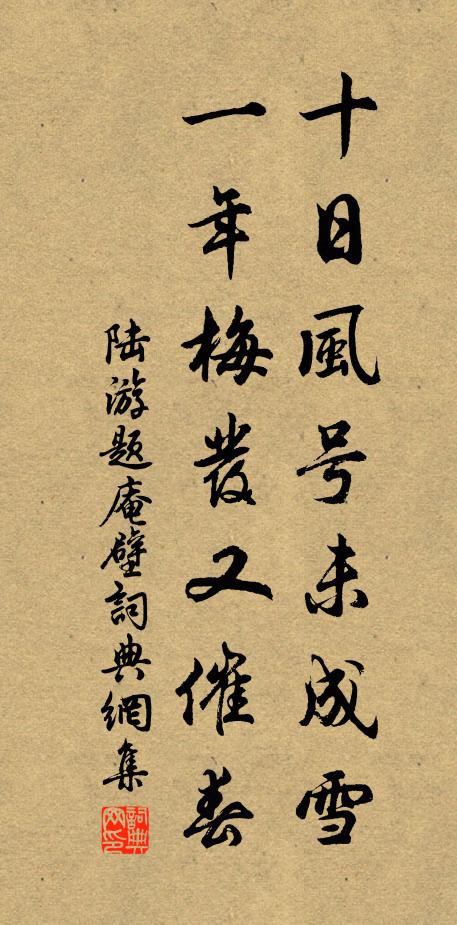 十日風号未成雪
一年梅發又催春
陆游题庵壁詞典網集
詞典网印